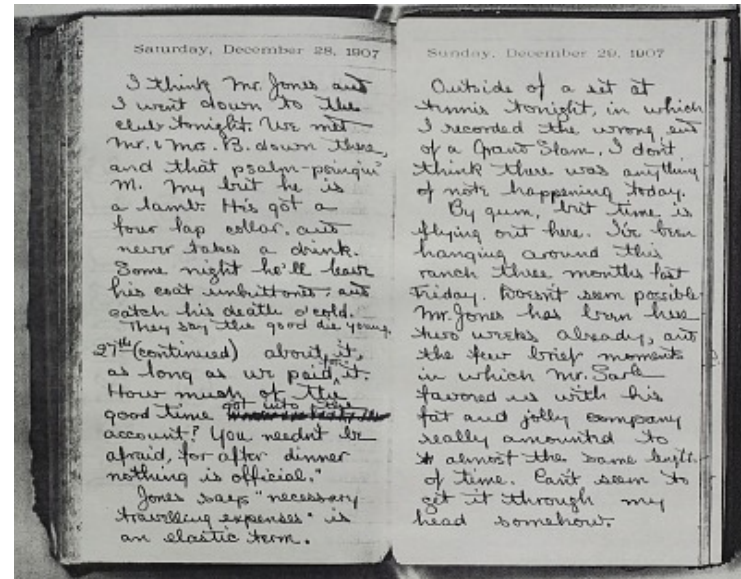 Saturday, December 28, 1907
I think Mr. Jones and
I went down to the
club tonight. We met
Mr. & Mrs. B. down there,
and that psalm-
M. My but he is
a lamb. He's got a
four lap collar, and
never takes a drink.
Some night he'll leave
his coat unbuttoned, and
catch his death o' cold.
They say the good die young.
27th (continued) about it,
as long as we paid for it.
How much of the
good time got into
account? You needn't be
afraid, for after dinner
nothing is official."
Jones says "necessary
travelling expenses" is
an elastic term.
Sunday, December 29, 1907
Outside of a set at
tennis tonight, in which
I recorded the wrong end
of a Grand Slam, I don't
think there was anything
of note happening today.
By gum, but time is
flying out here. I've been
hanging around this
ranch three months last
Friday. Doesn't seem possible
Mr. Jones has been here
two weeks already, and
the few brief moments
in which Mr.
favored us with his
fat and jolly company
really amounted to
almost the same length
of time. Can't seem to
get it through my
head somehow.